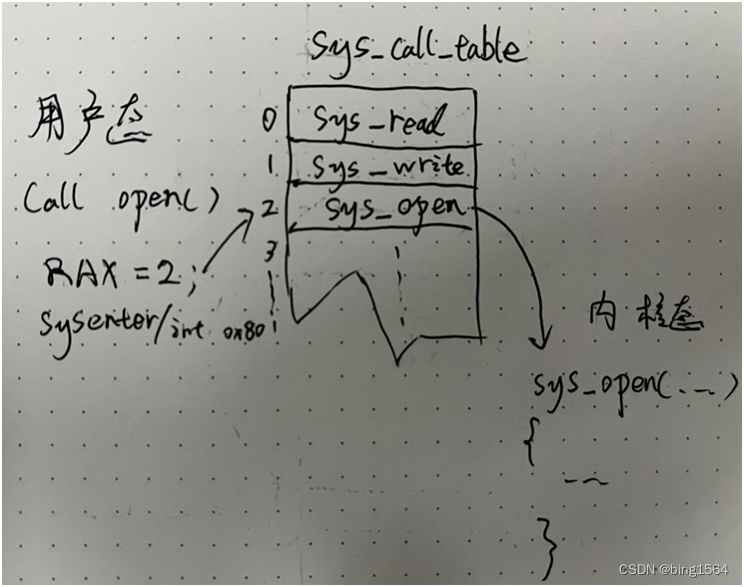 Sys_call_table
用户态
Call open()
RAX = 2;
Sysenter/int 0x80
0 Sys_read
1 Sys_write
2 Sys_open
3
内核态
sys_open(...)
{
--
}
CSDN @bing1564